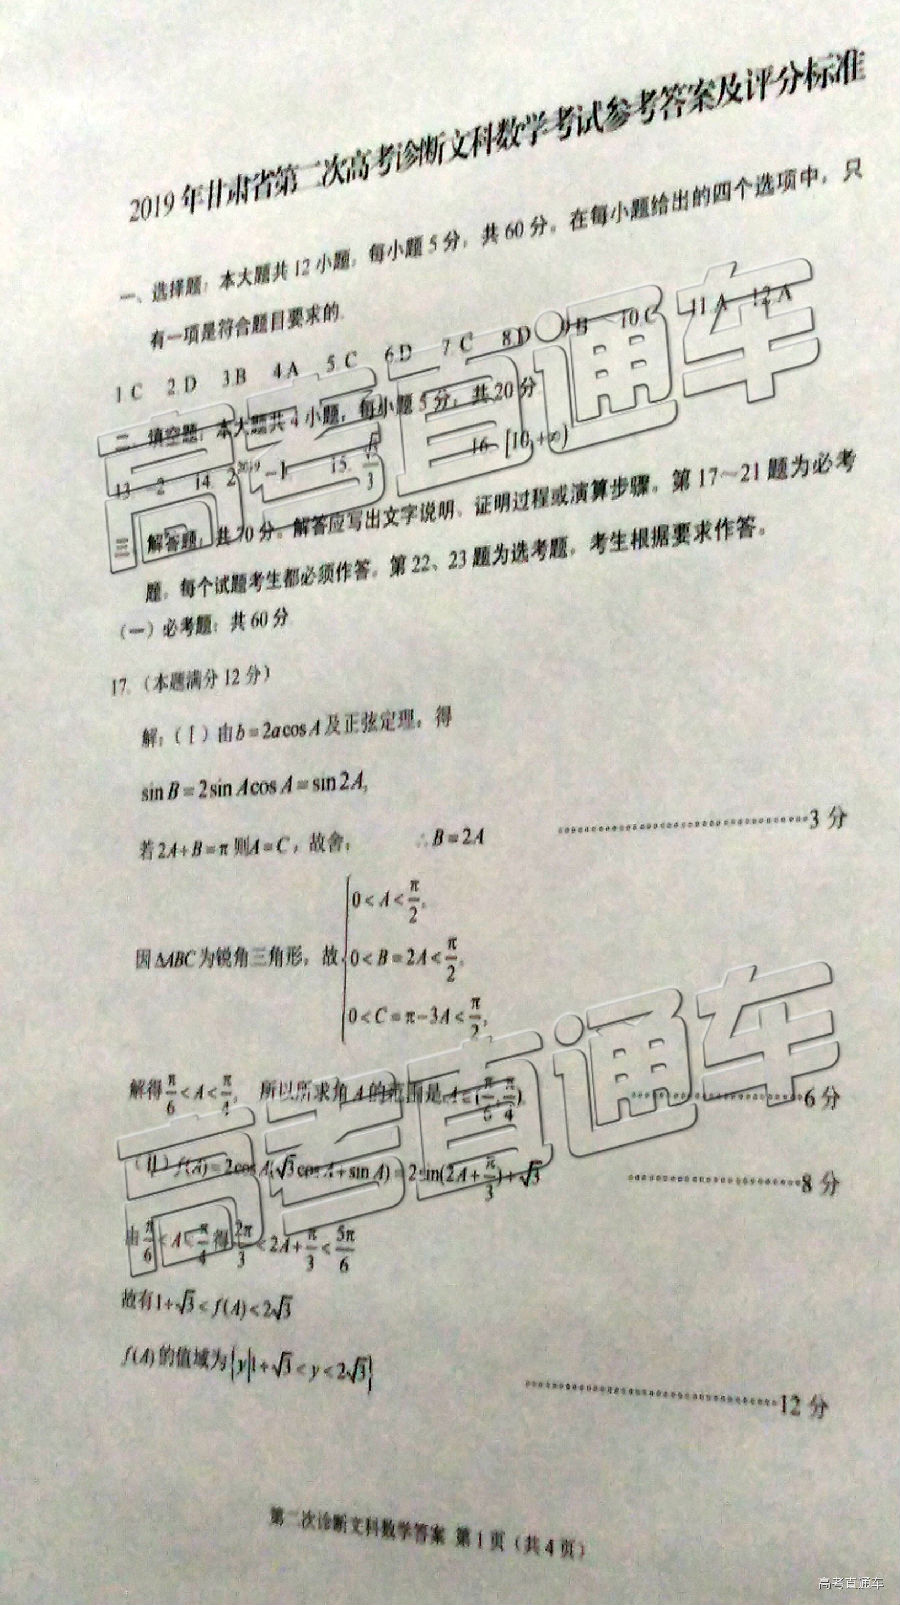 2019年甘肃省第二次高考诊断文科数学考试参考答案及评分标准
一、选择题：本大题共12小题，每小题5分，共60分。在每小题给出的四个选项中，只
有一项是符合题目要求的.
1 C 2 D 3 B 4 A 5 C 6 D 7 C 8 D 9 B 10 C 11 A 12 A
二、填空题：本大题共4小题，每小题5分，共20分
13. -2 14. 2^2019 -1 15. 16. [10,+∞)
三、解答题：共70分。解答应写出文字说明、证明过程或演算步骤。第17~21题为必考
题，每个试题考生都必须作答。第22、23题为选考题，考生根据要求作答。
（一）必考题：共60分
17.（本题满分12分）
解：（Ⅰ）由b=2acosA及正弦定理，得
sin B=2sin Acos A=sin2A,
若2A+B=π则A=C，故舍， ∴B=2A ……………3分
因ΔABC为锐角三角形，故 { 0<A<π/2,
0<B=2A<π/2,
0<C=π-3A<π/2,
解得π/6<A<π/4, 所以所求角A的范围是A=(π/6,π/4). ……………6分
（Ⅱ）f(A)=2cosA(√3cosA+sinA)=2sin(2A+π/3)+√3 ……………8分
由π/6<A<π/4得2π/3<2A+π/3<5π/6
故有1+√3<f(A)<2√3
f(A)的值域为{y|1+√3<y<2√3} ……………12分
第二次诊断文科数学答案 第1页（共4页）
高考直通车
高考直通车
高考直通车